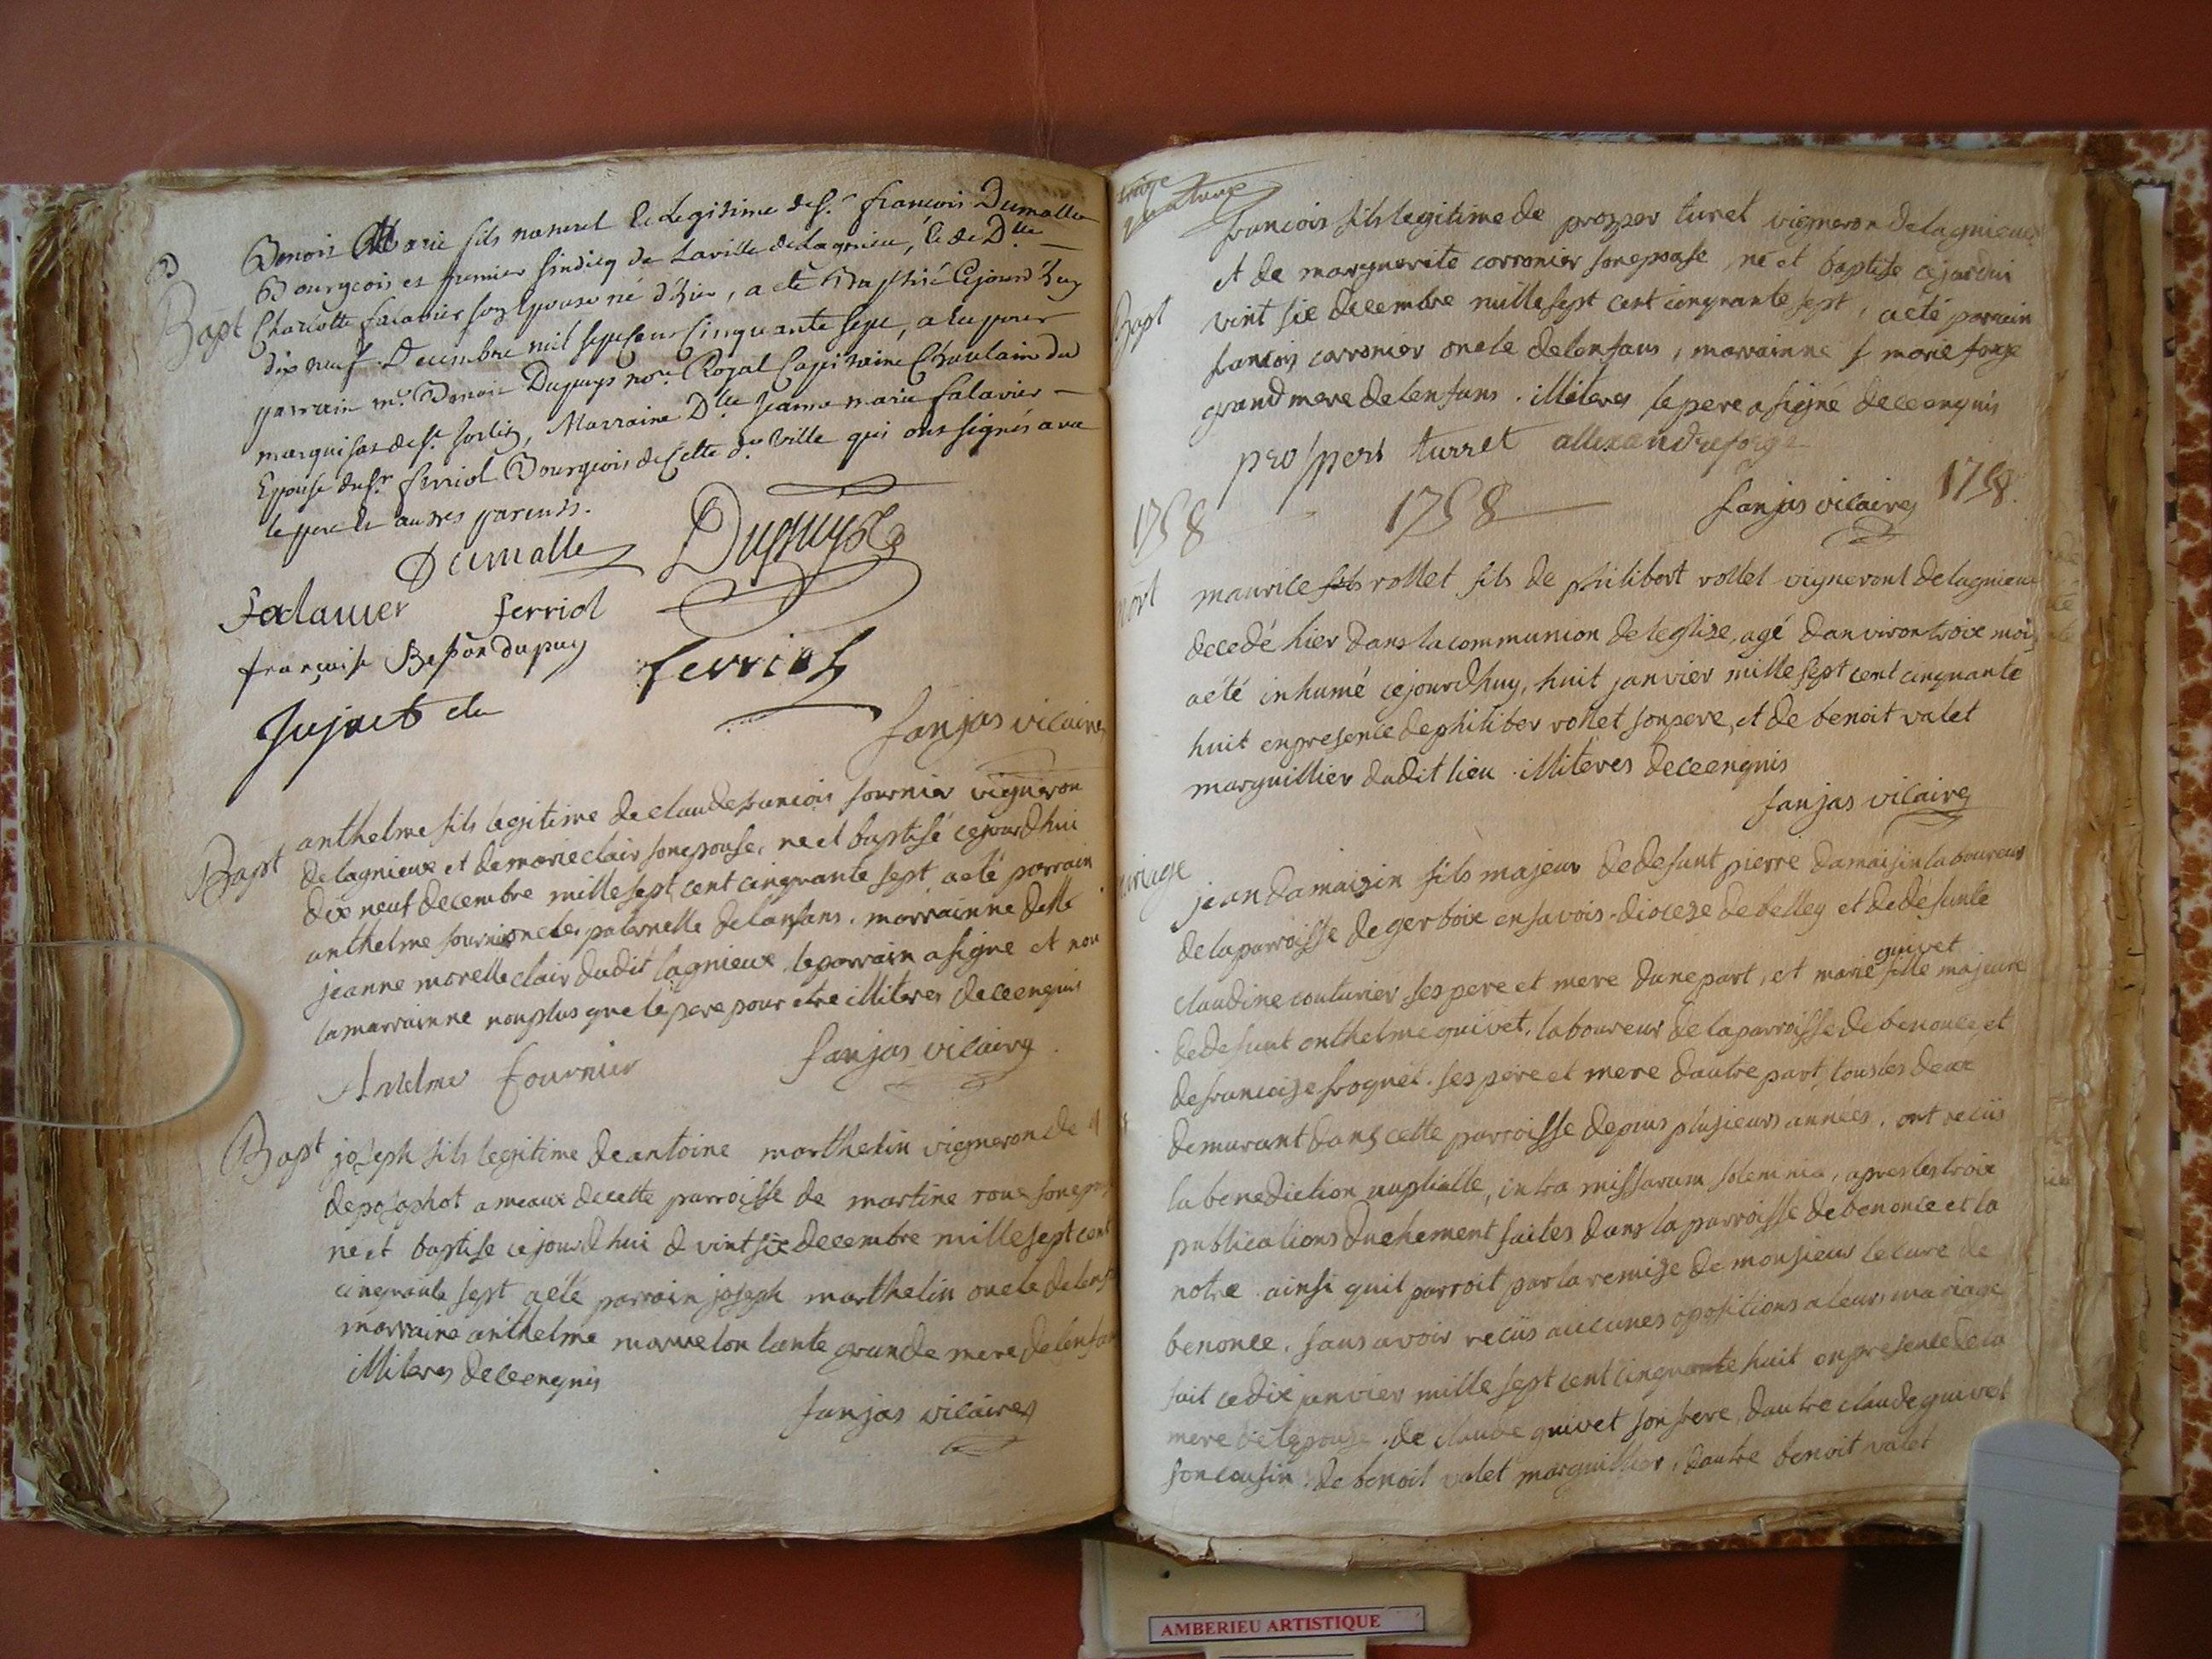 B
Benoit Marie fils naturel & Legitime de Sr. françois Dumalle
Bourgeois et premier sindicq de Laville de Lagnieu, & de Dlle
Bapt Charlotte falavier son Epouse né d'hier, a eté Baptisé Cejourd'huy
dix neuf Decembre mil sept cent Cinquante sept, a eu pour
parrain me. Benoit Dupuys nore. Royal Capitaine Chatelain du
marquisat de St. sorlin, Marraine Dlle Jeanne marie falavier
Epouse du Sr. ferriol Bourgeois de Cette de. Ville qui ont signés avec
le pere & autres parents.
Dumalle Dupuys
falavier ferriol
françoise Besson dupuy
ferriol
Jujat
fanjas vicaire
anthelme fils legitime de claude francois fournier vigneron
Bapt de lagnieux et de marie clair son epouse, ne et baptisé cejourdhui
dix neuf decembre mille sept cent cinquante sept a eté parrain
anthelme fournier oncle paternelle de lanfans. marrainne delle
jeanne morelle clair dudit lagnieux, le parrain a signe et non
la marrainne non plus que le pere pour etre illiteres de ce enquis
Antelme fournier fanjas vicaire
Bapt joseph fils legitime de antoine marthelin vigneron de
de posaphot ameaux de cette parroisse de martine roux son epo
ne et baptise ce jourdhui d vint six decembre mille sept cent
cinquante sept a eté parrain joseph marthelin oncle de lenf
marraine anthelme marvelon tante grande mere de lenfan
illiteres de ce enquis
fanjas vicaire
traize
quatorze
francois fils legitime de prosper turet vigneron de lagnieux
et de marguerite corronier son epouse, né et baptise cejourdui
Bapt vint six decembre mille sept cent cinquante sept, a eté parrain
francois corronier oncle de lenfans, marrainne f marie forge
grand mere de lenfans. illiteres le pere a signé de ce enquis
prosper turret allexandre forge
fanjas vicaire
1758 1758 1758.
mort maurice fils rollet fils de philibert rollet vigneront de lagnieux
decedé hier dans la communion de leglize, agé danviron troix mois
a été inhumé cejourdhuy, huit janvier mille sept cent cinquante
huit en presence de philiber rollet son pere, et de benoit valet
marguillier dudit lieu. illiteres de ce enquis
fanjas vicaire
mariage jean damaizin fils majeur de defunt pierre damaisin laboureur
de la parroisse de gerboix en savois diocese de belley et de defunte
claudine couturier ses pere et mere dune part, et marie guivet fille majeure
de defunt anthelme guivet, laboureur de la parroisse de benonce et
de francoise froquet. ses pere et mere dautre part, tous les deux
demurant dans cette parroisse depuis plusieurs années, ont recus
la benediction nuptialle, intra missarum solemnia, apres les troix
publications duehement faites dans la parroisse de benonce et la
notre ainsi quil parroit par la remise de monsieur le cure de
benonce, sans avoir recus aucunes opositions a leurs mariage
fait ce dix janvier mille sept cent cinquante huit en presence de la
mere de lepouse, de claude guivet son frere, dautre claude guivet
son cousin. de benoit valet marguillier, dautre benoit valet
AMBERIEU ARTISTIQUE